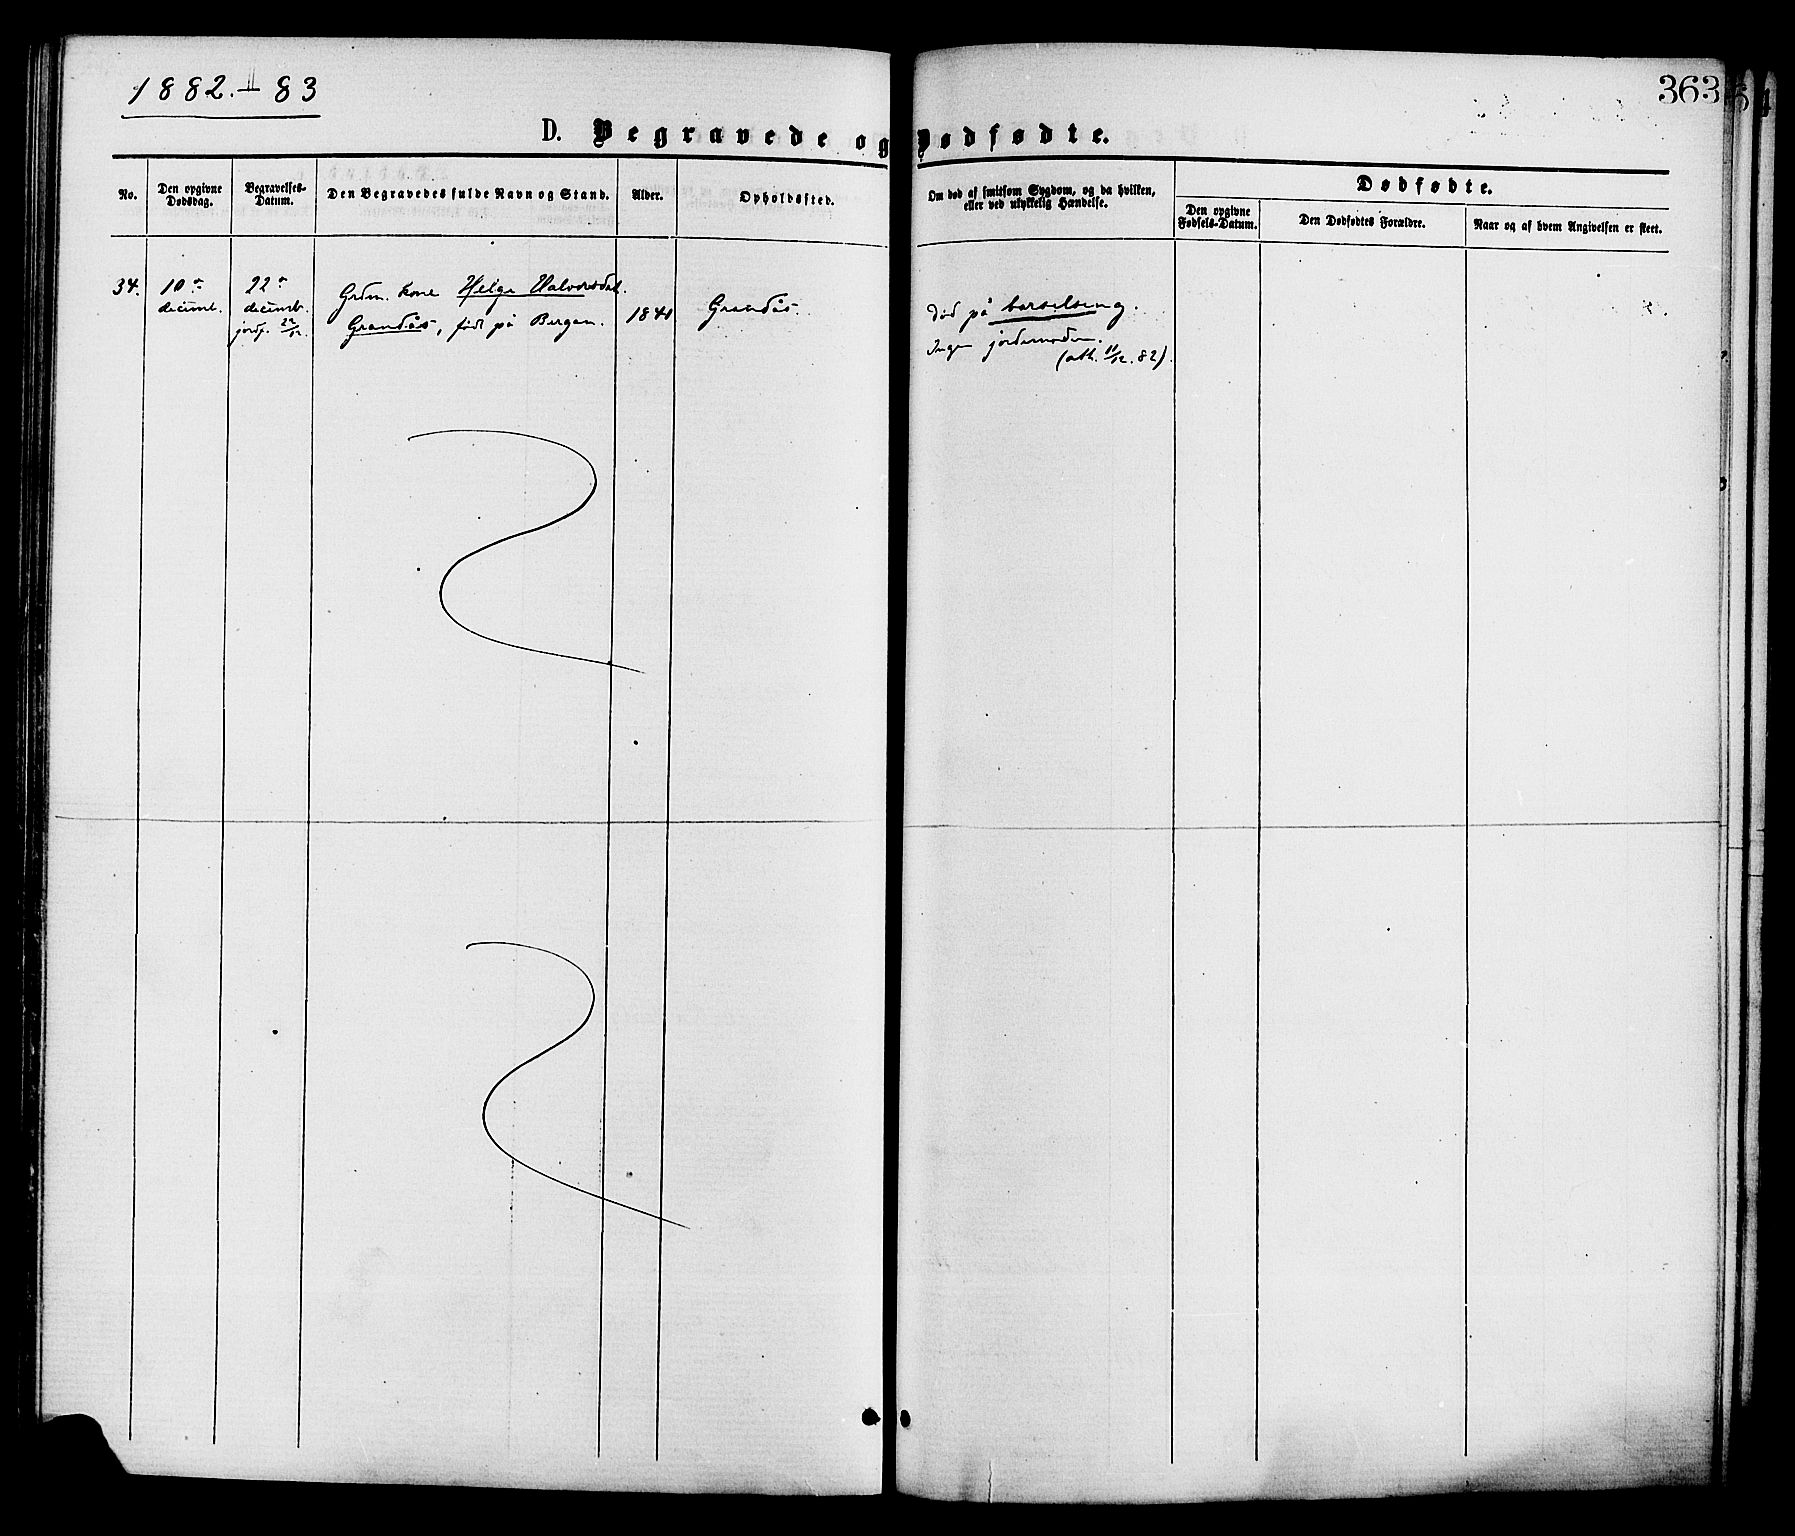 1882.-83
363
D. Begravede og Dødfødte.
No.
Den opgivne
Dødsdag.
Begravelses-
Datum.
Den Begravedes fulde Navn og Stand.
Alder.
Opholdssted.
Om død af smitsom Sygdom, og da hvilken,
eller ved ulykkelig Hændelse.
Dødfødte.
Den opgivne
Fødsels-Datum.
Den Dødfødtes Forældre.
Naar og af hvem Angivelsen er skeet.
34.
10de
decemb.
22de
decemb.
jordf. 22/12.
Grdm. kone Helge Halvorsdat.
Grandås, født på Bergan.
1840
Grandås
Død på barselseng.
Ingen jordemoder.
(att. 11/12.82).